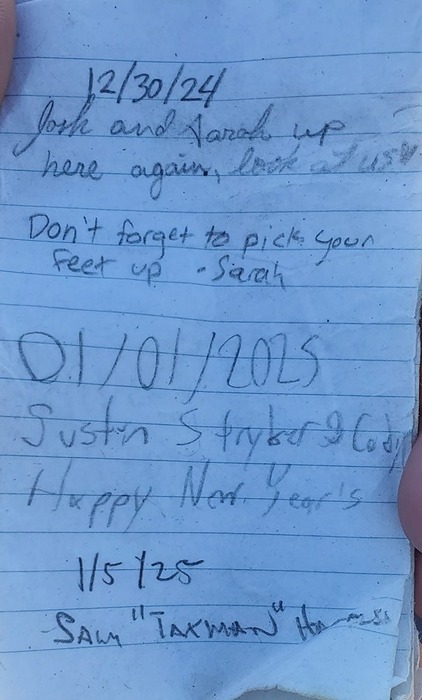 12/30/24
Josh and Sarah up
here again, look at us
Don't forget to pick your
feet up - Sarah
01/01/2025
Justin Stryker & Cody
Happy New Year's
1/5/25
"TAXMAN"